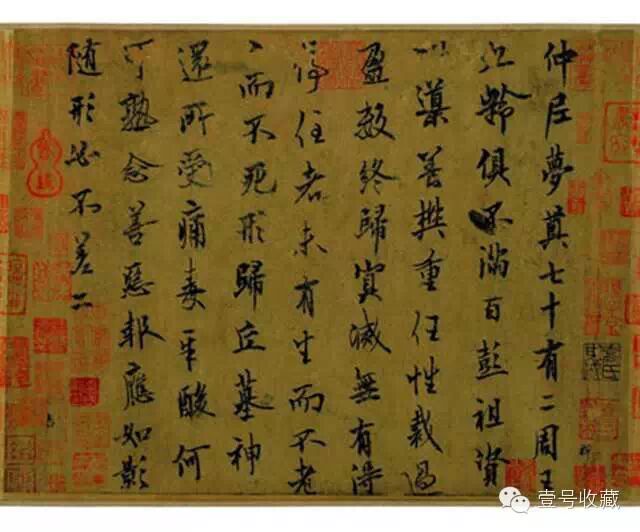 仲尼夢奠七十有二周王
九齡俱不滿百彭祖資
以導養樊重任性裁過
盈數終歸冥滅無有得
停住者未有生而不老
〻而不死形歸丘墓神
還所受痛毒辛酸何
可熟念善惡報應如影
隨形必不差二
壹号收藏